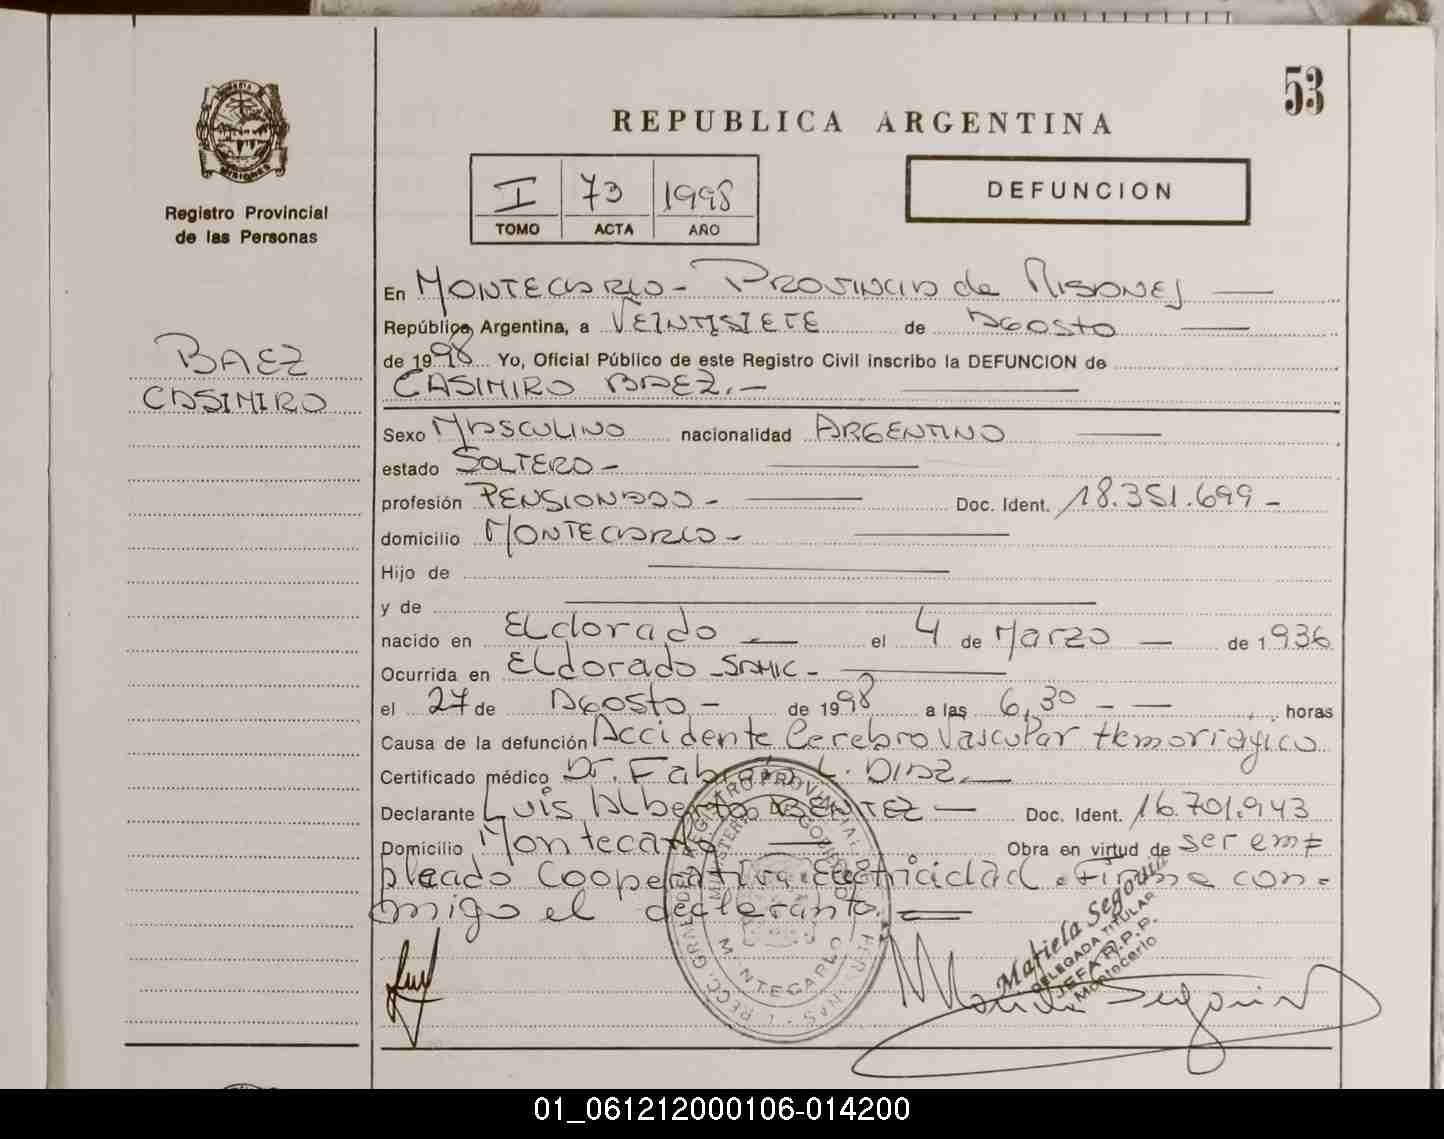 53
REPUBLICA ARGENTINA
MISIONES
Registro Provincial
de las Personas
I 73 1998
TOMO ACTA AÑO
DEFUNCION
BAEZ
CASIMIRO
En MONTECARLO - PROVINCIA de MISIONES
República Argentina, a VEINTISIETE de AGOSTO
de 1998 Yo, Oficial Público de este Registro Civil inscribo la DEFUNCION de
CASIMIRO BAEZ.-
Sexo MASCULINO nacionalidad ARGENTINO
estado SOLTERO -
profesión PENSIONADO - Doc. Ident. 18.351.699 -
domicilio MONTECARLO -
Hijo de
y de
nacido en ELdorado - el 4 de Marzo - de 1936
Ocurrida en ELdorado - SAMIC -
el 27 de AGOSTO - de 1998 a las 6,30 - - horas
Causa de la defunción Accidente Cerebro Vascular Hemorrágico
Certificado médico Dr. Fabián L. DIAZ.
Declarante Luis Alberto BENITEZ - Doc. Ident. 16.701.943
Domicilio Montecarlo Obra en virtud de ser em=
pleado Cooperativa Electricidad. Firma con-
migo el declarante.
REGISTRO PROVINCIAL DE LAS PERSONAS
MINISTERIO DE GOBIERNO
MONTECARLO
Mariela Segovia
DELEGADA TITULAR
JEFA R.P.P.
Montecarlo
01_061212000106-014200